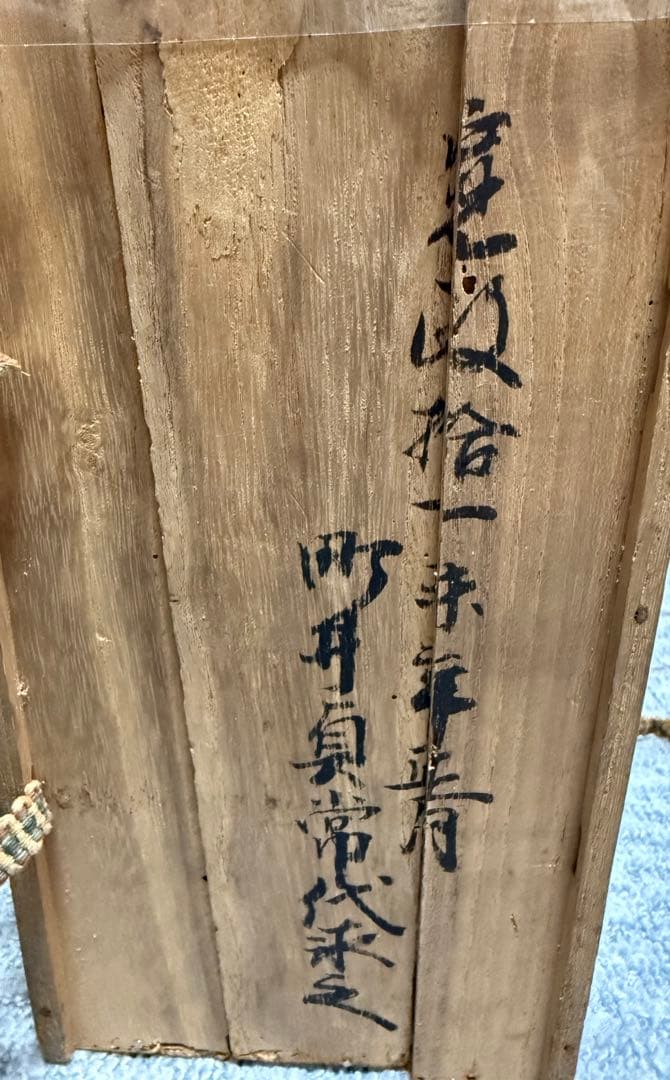 寛政拾一未年正月
町井貞常代求之